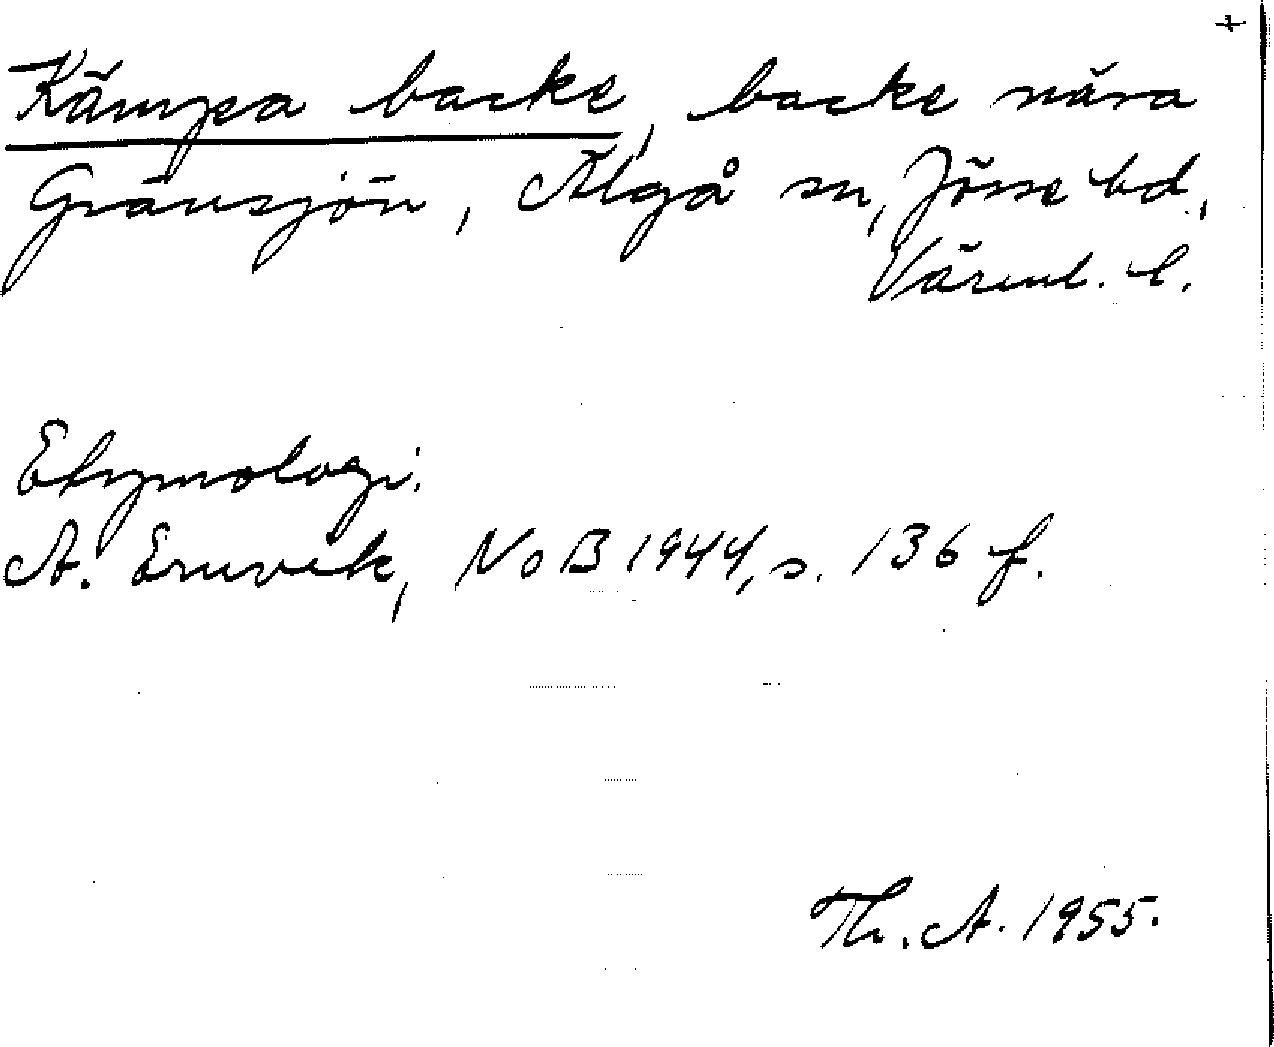 +
Kämpa backe, backe nära
Gränsjön, Älgå sn, Jösse hd.,
Värml. l.
Etymologi.
A. Ernvik, NoB 1944, s. 136 f.
Th. A. 1955.